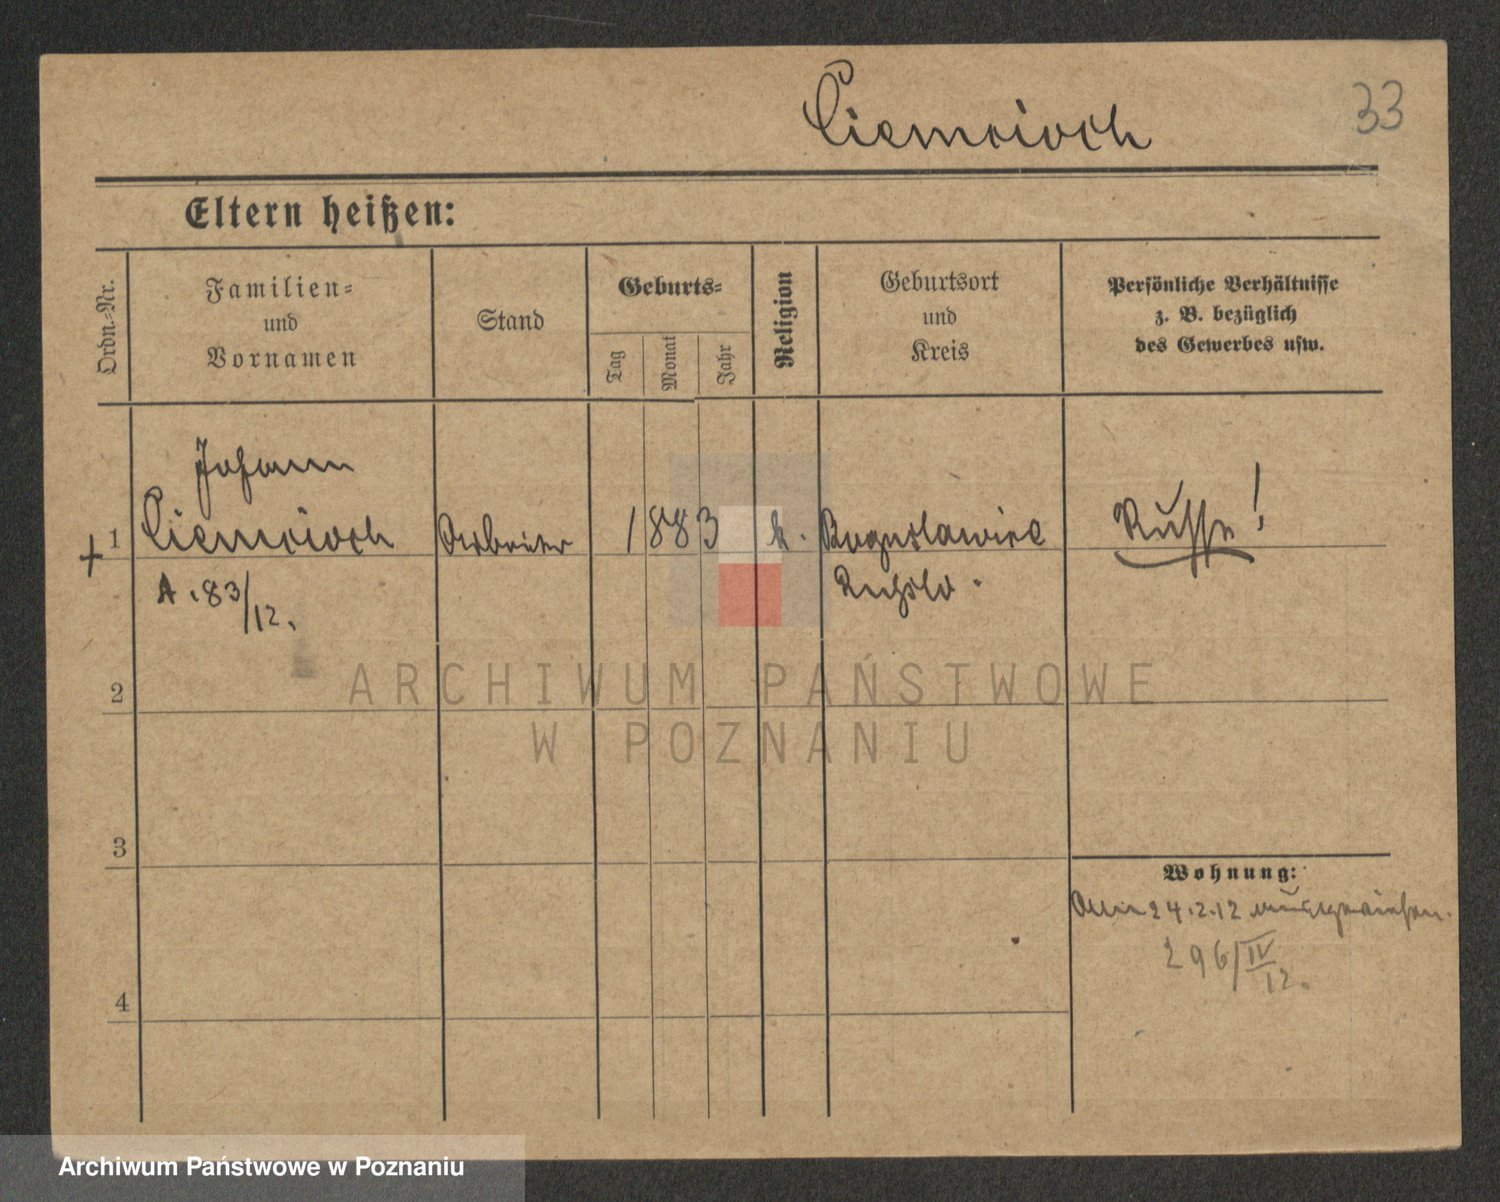 Ciemcioch
33
Eltern heißen:
Ordn.-Nr.
Familien-
und
Vornamen
Stand
Geburts-
Tag
Monat
Jahr
Religion
Geburtsort
und
Kreis
Persönliche Verhältnisse
z. B. bezüglich
des Gewerbes usw.
Johann
+ 1 Ciemcioch Arbeiter 1883 k. Boguslawice Russe!
A. 83/12.
2
ARCHIWUM PAŃSTWOWE
W POZNANIU
3
Wohnung:
Am 24.2.12 ausgewiesen.
296/IV
12.
4
Archiwum Państwowe w Poznaniu